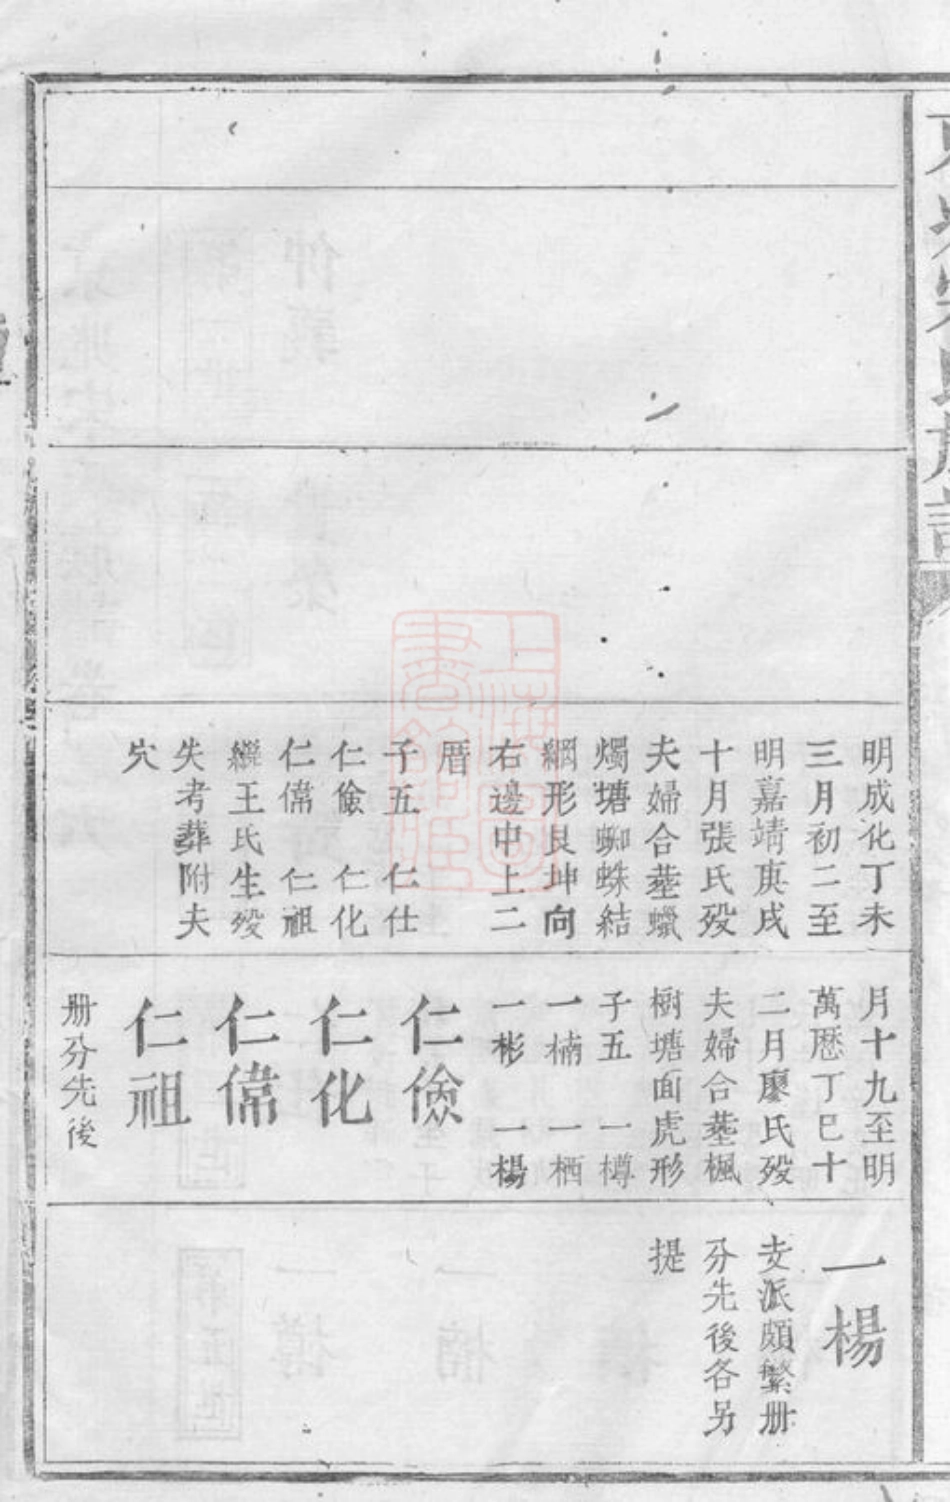 明成化丁未
三月初二至
明嘉靖庚戌
十月張氏歿
夫婦合葬蠟
燭塘蜘蛛結
網形艮坤向
右邊中上二
厝
子五 仁仕
仁儉 仁化
仁偉 仁祖
繼王氏生歿
失考葬附夫
穴
月十九至明
萬曆丁巳十
二月廖氏歿
夫婦合葬楓
樹塘面虎形
子五 一樽
一楠 一栖
一彬 一楊
仁儉
仁化
仁偉
仁祖
册分先後
一楊
支派頗繁册
分先後各另
提
上海圖
書館藏